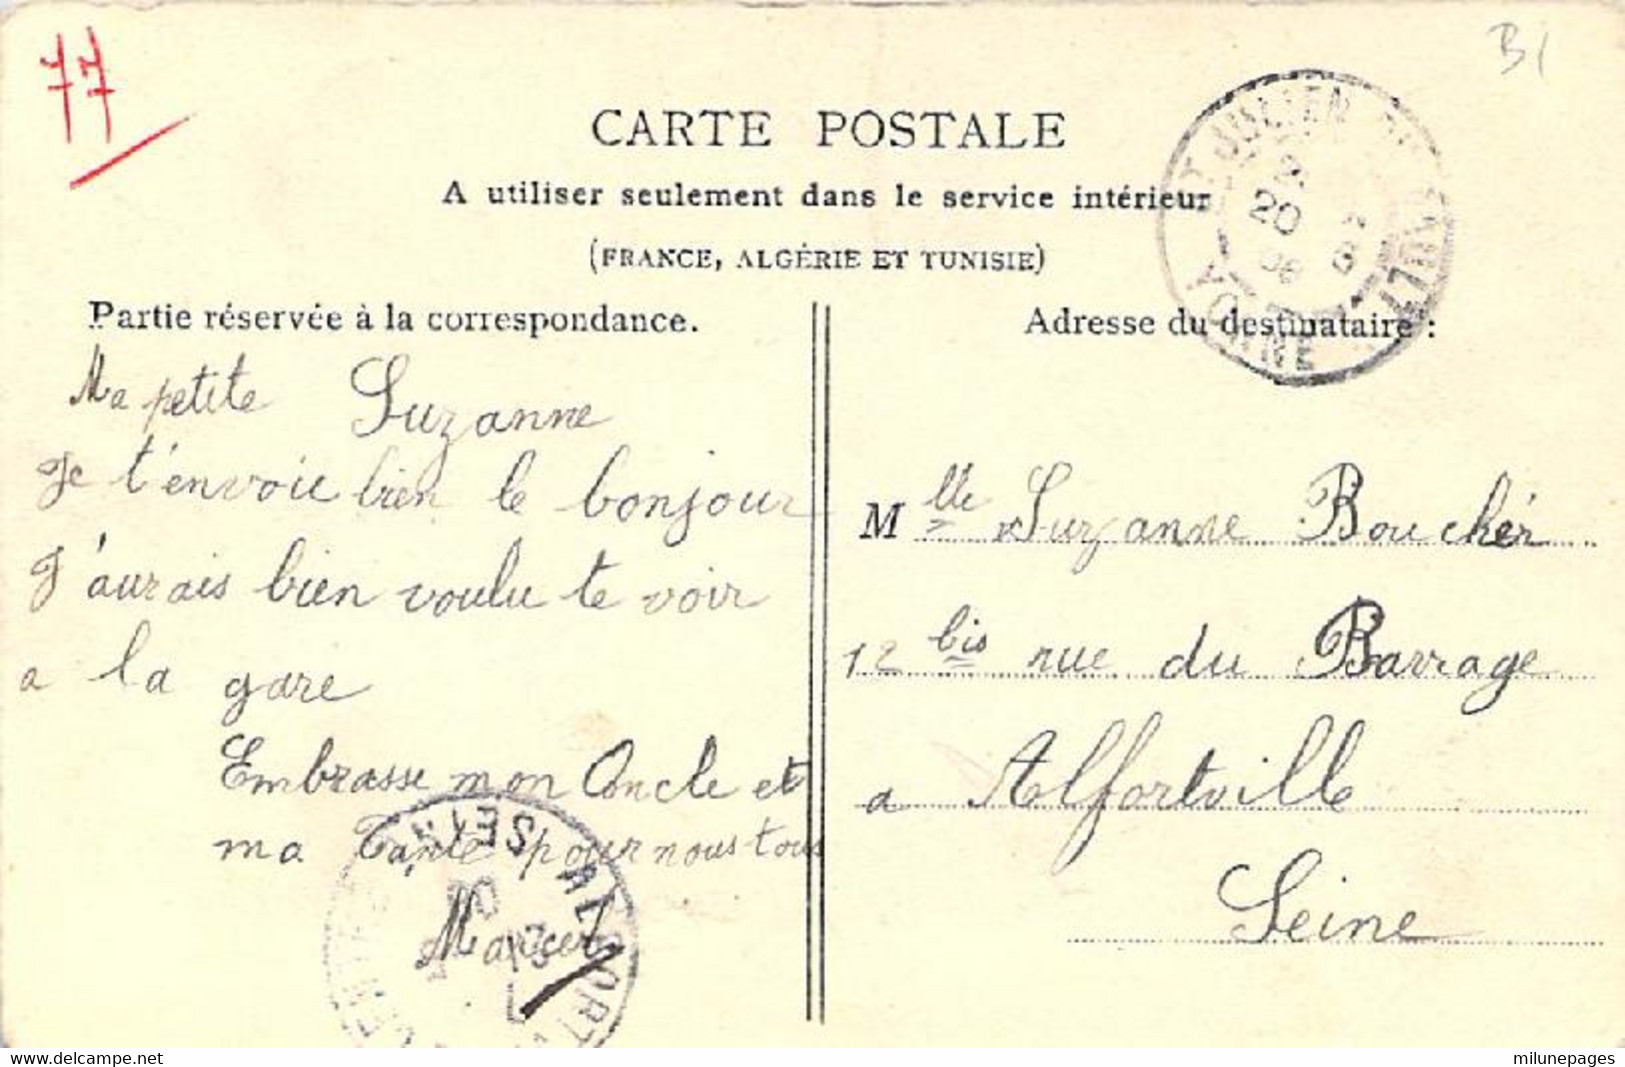 77
B1
CARTE POSTALE
A utiliser seulement dans le service intérieur
(FRANCE, ALGÉRIE ET TUNISIE)
Partie réservée à la correspondance.
Ma petite Suzanne
Je t'envoie bien le bonjour
J'aurais bien voulu te voir
a la gare
Embrasse mon Oncle et
ma Tante pour nous tous
Marcel
Adresse du destinataire :
Mlle Suzanne Boucher
12 bis rue du Barrage
a Alfortville
Seine
JULIEN DU SAULT
20
YONNE
ALFORTVILLE
SEINE
www.delcampe.net
milunepages